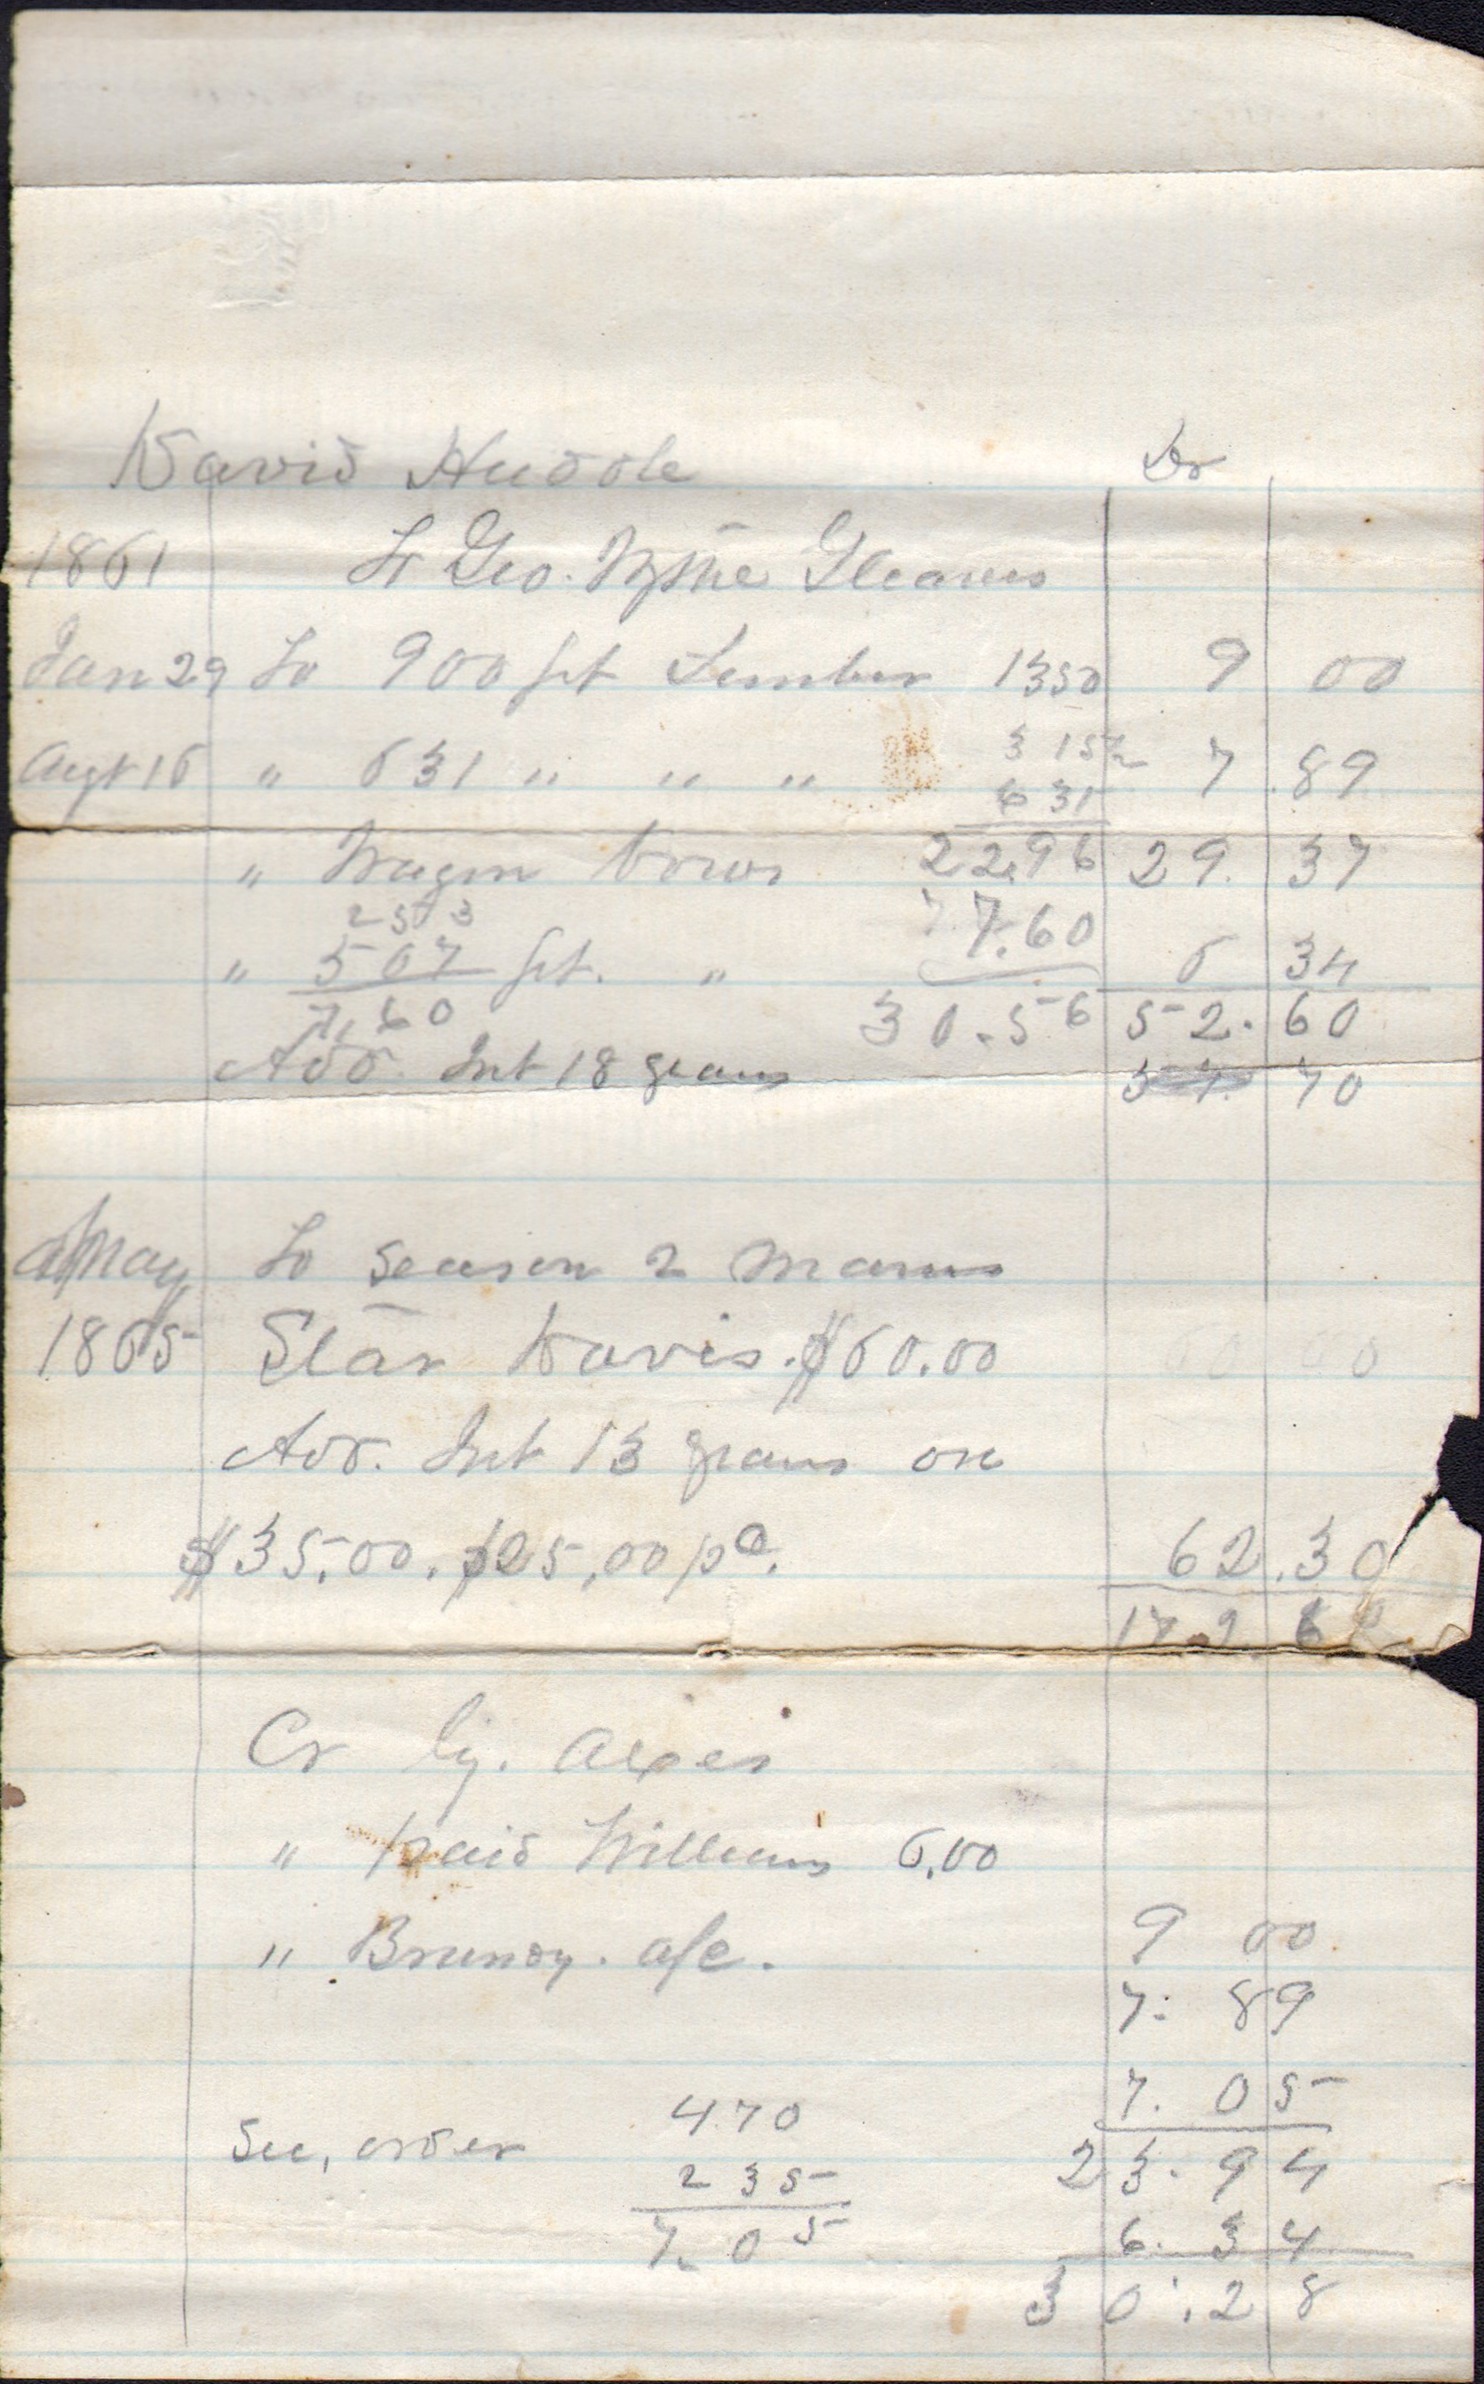 David Huddle Dr
1861 To Geo. Wythe Gleaves
Jan 29 To 900 ft Lumber 1350 9 00
Augt 16 " 631 " " " 3 15½ 7.89
6 31
" Wagon 22.96 29. 37
2 53 7.60
" 507 ft. " 6 34
7.60 30.56 52.60
Add Int 18 years 70
May To Season 2 Mares
1865 Star Davis. $60.00 60 00
Add. Int 13 years on
$35.00. $25,00 pd. 62.30
Cr by. Axes
" paid Williams 6.00
" Brundy. a/c. 9 00
7. 89
7. 05
See, order 4.70 23. 94
2 35 6. 34
7. 05 30.28